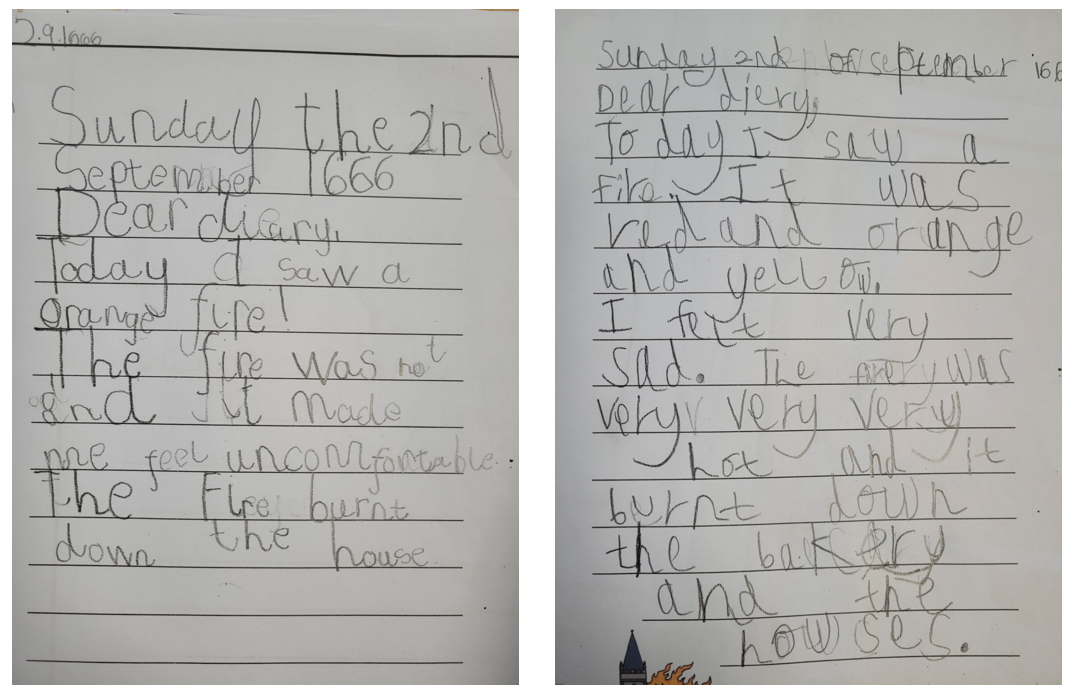 2.9.1666
Sunday the 2nd
September 1666
Dear dieary,
Today I saw a
orange fire!
The fire was hot
and It made
me feel uncomfortable.
The Fire burnt
down the house.
Sunday 2nd of september 166
Dear diery,
To day I saw a
fire. It was
red and orange
and yellow.
I felt very
sad. The fire was
very very very
hot and it
burnt down
the bakery
and the
howses.